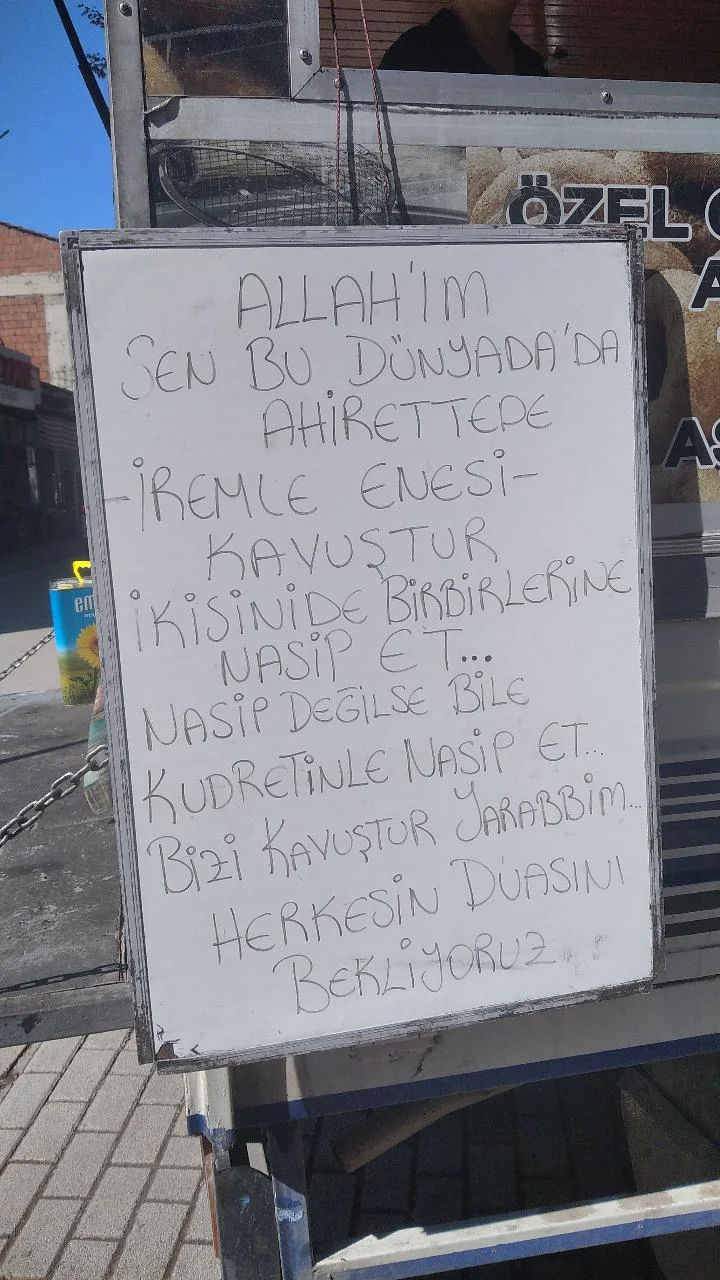 ÖZEL
ALLAH'IM
SEN BU DÜNYADA'DA
AHİRETTEDE
-İREMLE ENESİ-
KAVUŞTUR
İKİSİNİDE BİRBİRLERİNE
NASİP ET...
NASİP DEĞİLSE BİLE
KUDRETİNLE NASİP ET...
BİZİ KAVUŞTUR YARABBİM...
HERKESİN DUASINI
BEKLİYORUZ